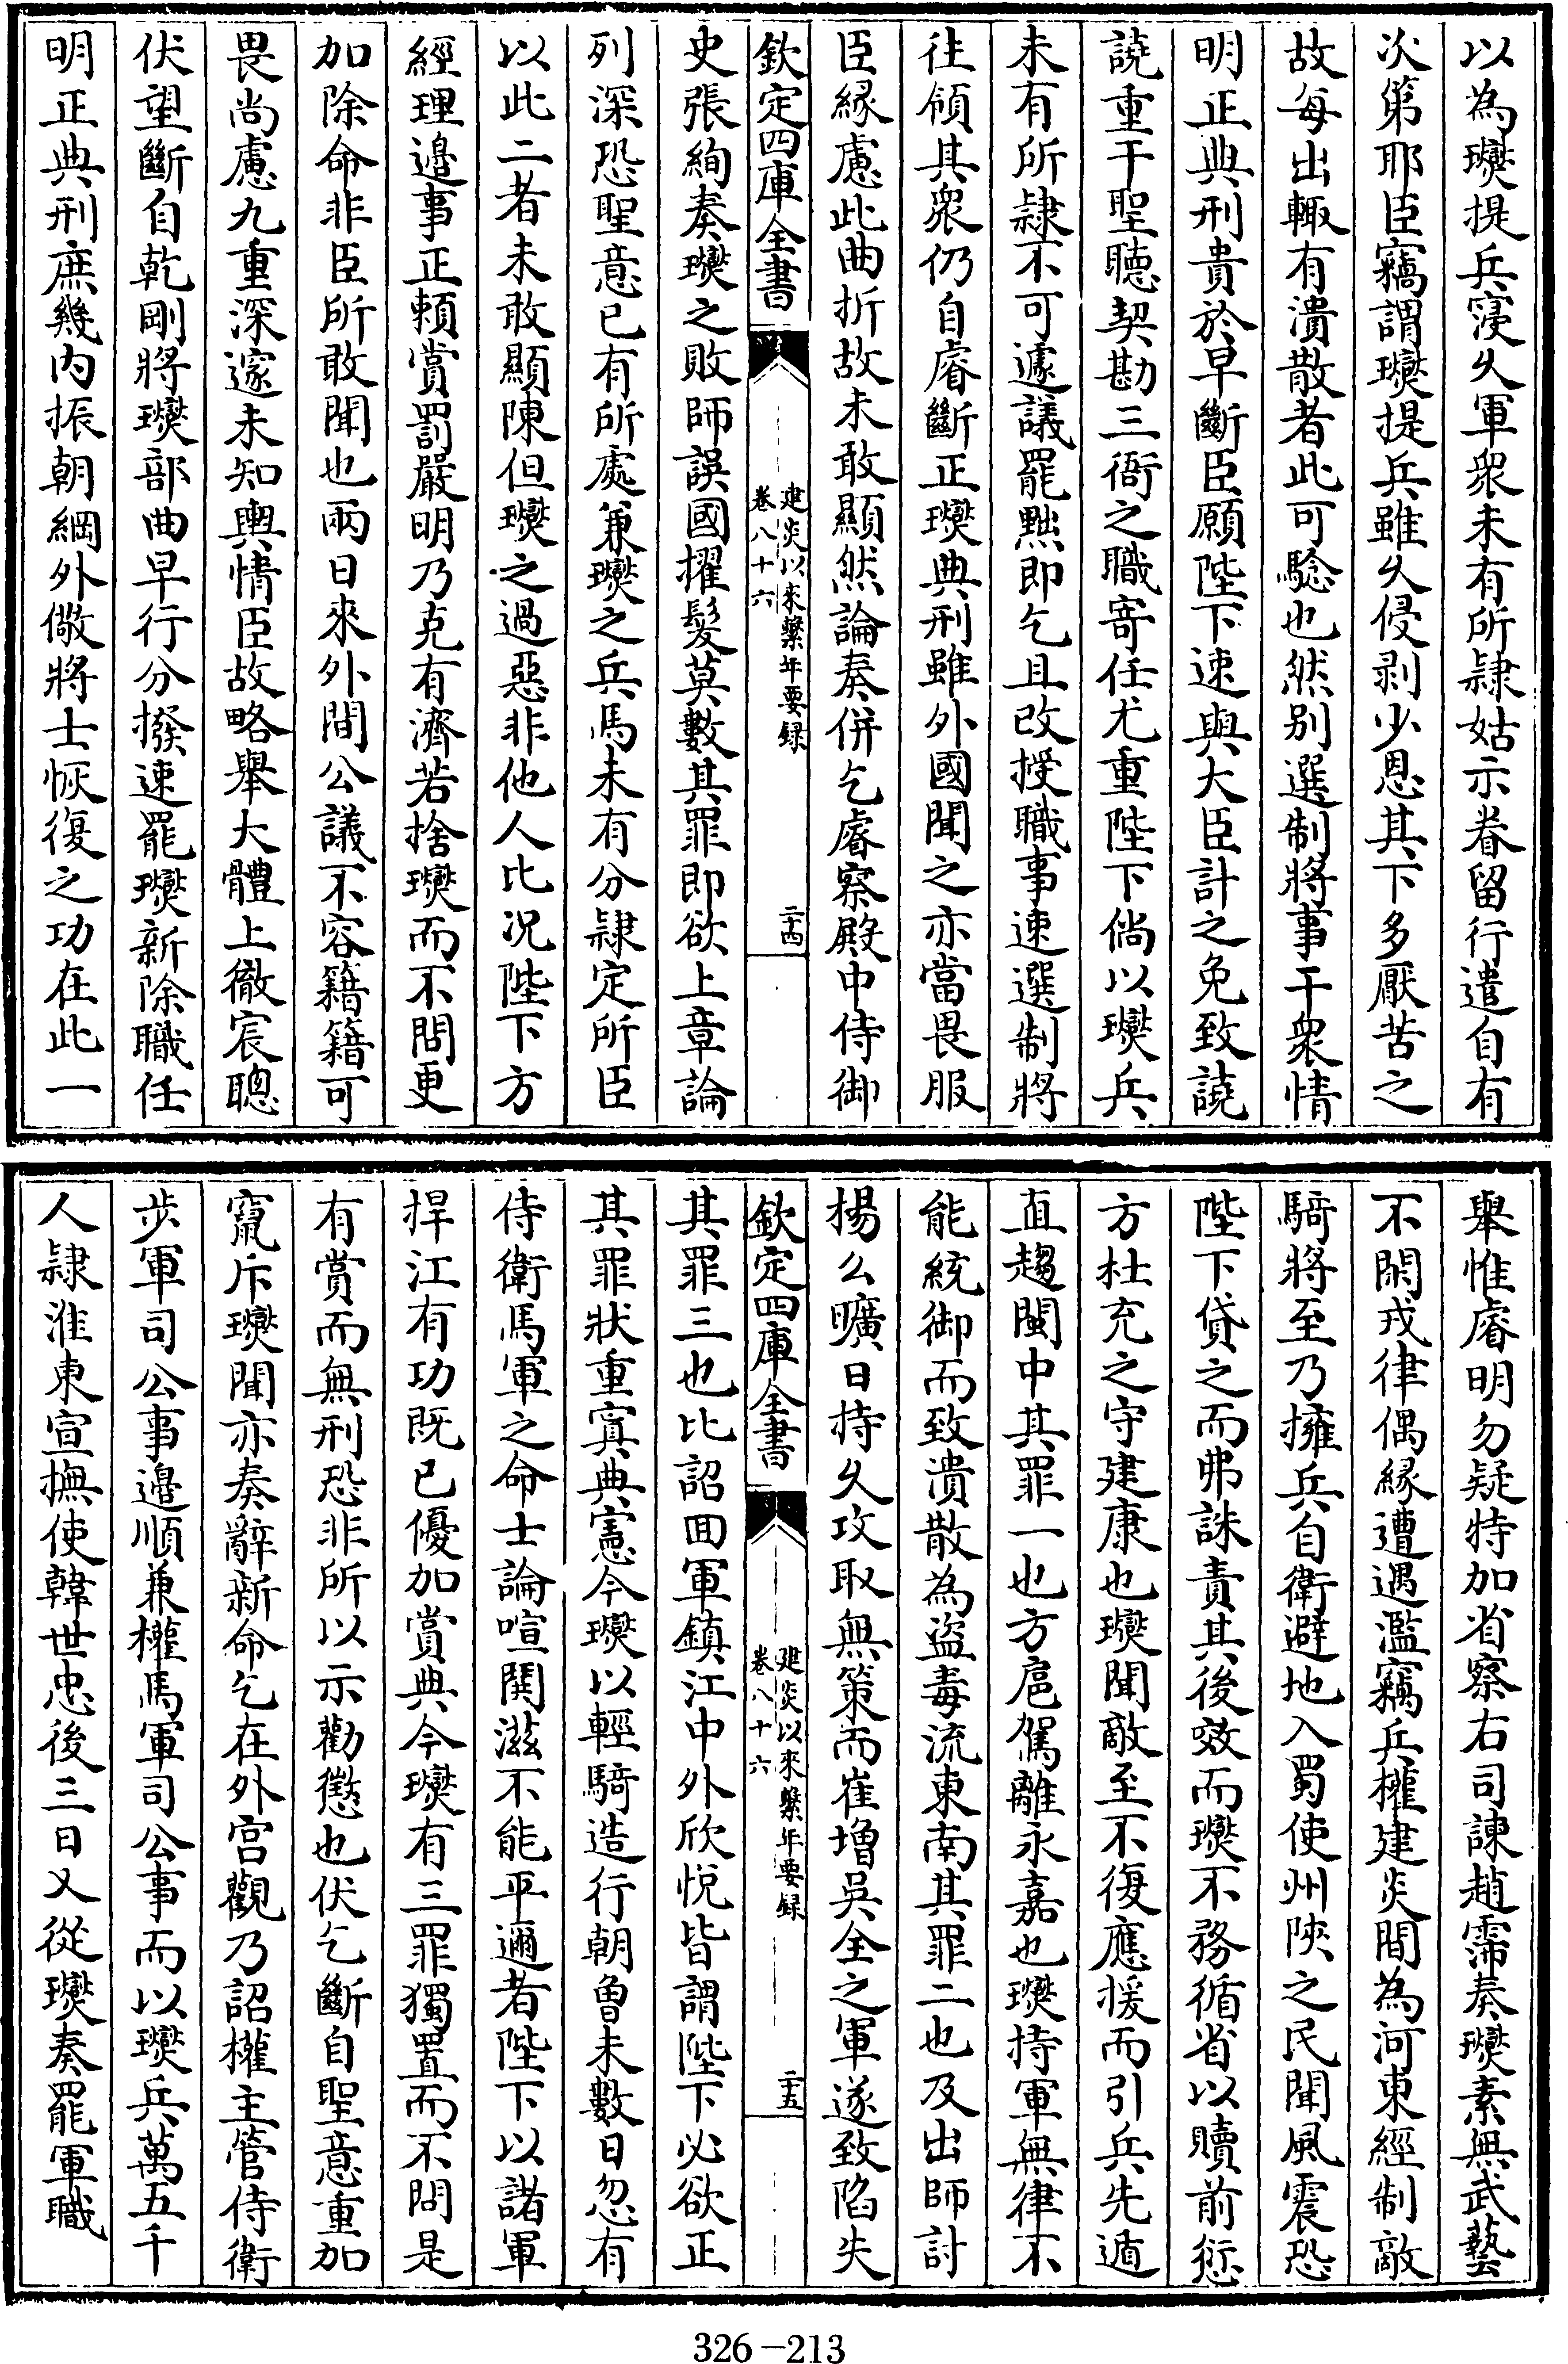 以為𤫉提兵寖久軍衆未有所隷姑示眷留行遣自有
次第耶臣竊謂𤫉提兵雖久侵剥少恩其下多厭苦之
故每出輙有潰散者此可騐也然别選制將事干衆情
明正典刑貴於早斷臣願陛下速與大臣計之免致譊
譊重干聖聽契勘三衙之職寄任尤重陛下倘以𤫉兵
未有所隷不可遽議罷黜即乞且改授職事速選制將
往領其衆仍自睿斷正𤫉典刑雖外國聞之亦當畏服
臣緣慮此曲折故未敢顯然論奏併乞睿察殿中侍御
欽定四庫全書
建炎以來繫年要録
卷八十六
二十四
史張絢奏𤫉之敗師誤國擢髮莫數其罪即欲上章論
列深恐聖意已有所處兼𤫉之兵馬未有分隷定所臣
以此二者未敢顯陳但𤫉之過惡非他人比况陛下方
經理邊事正頼賞罰嚴明乃克有濟若捨𤫉而不問更
加除命非臣所敢聞也兩日來外間公議不容籍籍可
畏尚慮九重深邃未知輿情臣故略舉大體上徹宸聰
伏望斷自乾剛將𤫉部曲早行分撥速罷𤫉新除職任
明正典刑庶幾内振朝綱外儆將士恢復之功在此一
舉惟睿明勿疑特加省察右司諫趙霈奏𤫉素無武藝
不閑戎律偶緣遭遇濫竊兵權建炎間為河東經制敵
騎將至乃擁兵自衛避地入蜀使州陜之民聞風震恐
陛下貸之而弗誅責其後效而𤫉不務循省以贖前愆
方杜充之守建康也𤫉聞敵至不復應援而引兵先遁
直趨閩中其罪一也方扈駕離永嘉也𤫉持軍無律不
能統御而致潰散為盗毒流東南其罪二也及出師討
楊么曠日持久攻取無策而崔增吳全之軍遂致陷失
欽定四庫全書
建炎以來繫年要録
卷八十六
二十五
其罪三也比詔回軍鎮江中外欣悦皆謂陛下必欲正
其罪狀重寘典憲今𤫉以輕騎造行朝曾未數日忽有
侍衛馬軍之命士論喧鬨滋不能平邇者陛下以諸軍
捍江有功既已優加賞典今𤫉有三罪獨置而不問是
有賞而無刑恐非所以示勸懲也伏乞斷自聖意重加
竄斥𤫉聞亦奏辭新命乞在外宫觀乃詔權主管侍衛
步軍司公事邊順兼權馬軍司公事而以𤫉兵萬五千
人隷淮東宣撫使韓世忠後三日又從𤫉奏罷軍職
326-213